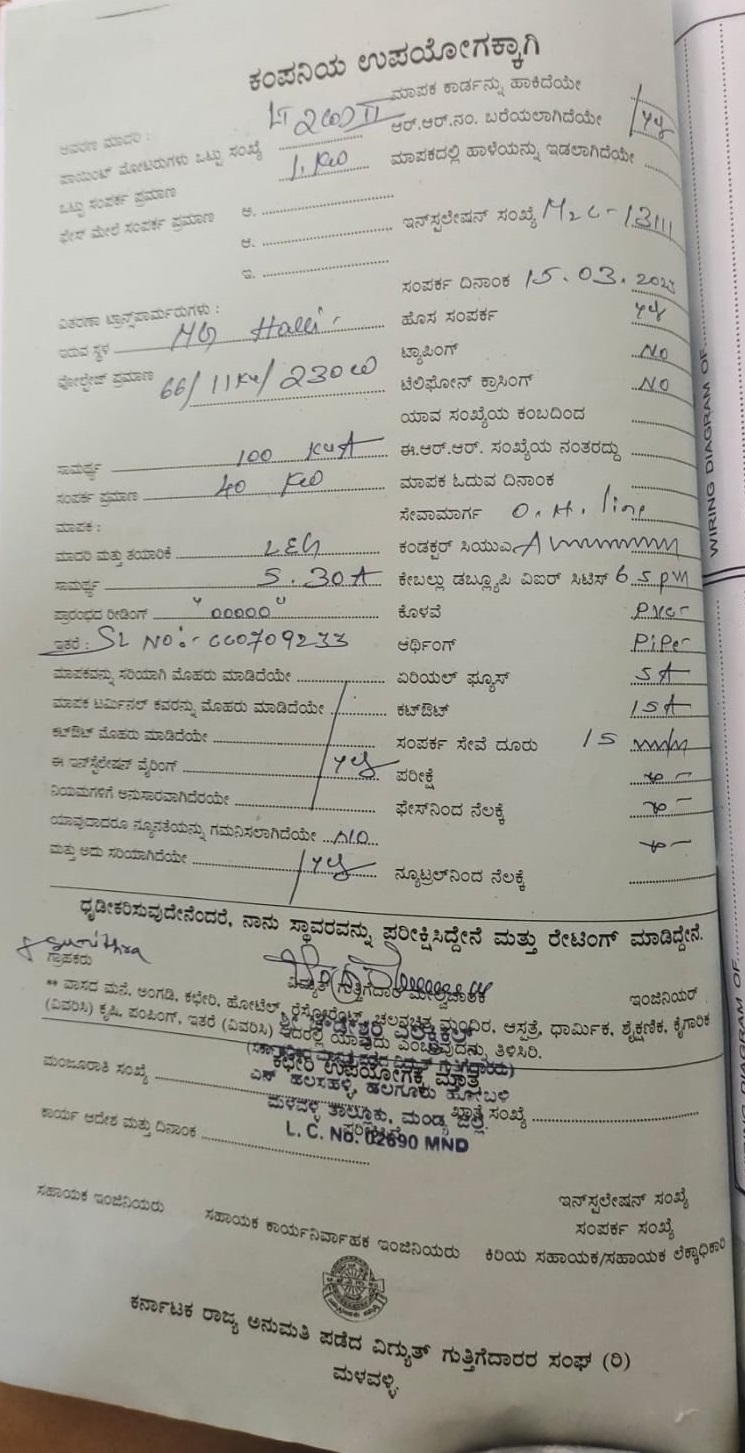 ಕಂಪನಿಯ ಉಪಯೋಗಕ್ಕಾಗಿ
ಮಾಪಕ ಕಾರ್ಡನ್ನು ಹಾಕಿದೆಯೇ
ಆವರಣ ಮಾದರಿ : LT 2(a) II ಆರ್.ಆರ್.ನಂ. ಬರೆಯಲಾಗಿದೆಯೇ Yes
ಪಾಯಿಂಟ್ ಮೋಟರುಗಳು ಒಟ್ಟು ಸಂಖ್ಯೆ
ಒಟ್ಟು ಸಂಪರ್ಕ ಪ್ರಮಾಣ 1. KW ಮಾಪಕದಲ್ಲಿ ಹಾಳೆಯನ್ನು ಇಡಲಾಗಿದೆಯೇ
ಫೇಸ್ ಮೇಲೆ ಸಂಪರ್ಕ ಪ್ರಮಾಣ ಅ.
ಆ. ಇನ್‌ಸ್ಪಲೇಷನ್ ಸಂಖ್ಯೆ
ಇ.
ಸಂಪರ್ಕ ದಿನಾಂಕ 15.03.
ವಿತರಣಾ ಟ್ರಾನ್ಸ್‌ಪಾರ್ಮರುಗಳು :
ಇರುವ ಸ್ಥಳ MG Halli ಹೊಸ ಸಂಪರ್ಕ Yes
ವೋಲ್ಟೇಜ್ ಪ್ರಮಾಣ 66/11KV/230 ಟ್ಯಾಪಿಂಗ್ NO
ಟೆಲಿಫೋನ್ ಕ್ರಾಸಿಂಗ್ NO
ಯಾವ ಸಂಖ್ಯೆಯ ಕಂಬದಿಂದ
ಸಾಮರ್ಥ್ಯ 100 KVA ಈ.ಆರ್.ಆರ್. ಸಂಖ್ಯೆಯ ನಂತರದ್ದು
ಸಂಪರ್ಕ ಪ್ರಮಾಣ 40 KW ಮಾಪಕ ಓದುವ ದಿನಾಂಕ
ಮಾಪಕ : ಸೇವಾಮಾರ್ಗ O.H. line
ಮಾದರಿ ಮತ್ತು ತಯಾರಿಕೆ L&G ಕಂಡಕ್ಟರ್ ಸಿಯುಎ
ಸಾಮರ್ಥ್ಯ 5.30A ಕೇಬಲ್ಲು ಡಬ್ಲ್ಯೂಪಿ ವಿಐರ್ ಸಿಟಿಸ್
ಪ್ರಾರಂಭದ ರೀಡಿಂಗ್ "00000" ಕೊಳವೆ
ಇತರೆ : SL NO:- ಆರ್ಥಿಂಗ್
ಮಾಪಕವನ್ನು ಸರಿಯಾಗಿ ಮೊಹರು ಮಾಡಿದೆಯೇ ಏರಿಯಲ್ ಫ್ಯೂಸ್ 5A
ಮಾಪಕ ಟರ್ಮಿನಲ್ ಕವರನ್ನು ಮೊಹರು ಮಾಡಿದೆಯೇ ಕಟ್‌ಔಟ್ 15A
ಕಟ್‌ಔಟ್ ಮೊಹರು ಮಾಡಿದೆಯೇ ಸಂಪರ್ಕ ಸೇವೆ ದೂರು 15
ಈ ಇನ್‌ಸ್ಪೆಲೇಷನ್ ವೈರಿಂಗ್ Yes ಪರೀಕ್ಷೆ
ನಿಯಮಗಳಿಗೆ ಅನುಸಾರವಾಗಿದೆರೆಯೇ ಫೇಸ್‌ನಿಂದ ನೆಲಕ್ಕೆ
ಯಾವುದಾದರೂ ನ್ಯೂನತೆಯನ್ನು ಗಮನಿಸಲಾಗಿದೆಯೇ NO
ಮತ್ತು ಅದು ಸರಿಯಾಗಿದೆಯೇ Yes ನ್ಯೂಟ್ರಲ್‌ನಿಂದ ನೆಲಕ್ಕೆ
ಧೃಡೀಕರಿಸುವುದೇನೆಂದರೆ, ನಾನು ಸ್ಥಾವರವನ್ನು ಪರೀಕ್ಷಿಸಿದ್ದೇನೆ ಮತ್ತು ರೇಟಿಂಗ್ ಮಾಡಿದ್ದೇನೆ.
Sunithra
ಗ್ರಾಹಕರು ವಿದ್ಯುತ್ ಗುತ್ತಿಗೆದಾರ ಮೇಲ್ವಿಚಾರಕ ಇಂಜಿನಿಯರ್
** ವಾಸದ ಮನೆ, ಅಂಗಡಿ, ಕಛೇರಿ, ಹೋಟೆಲ್, ರೆಸ್ಟೋರೆಂಟ್, ಚಲನಚಿತ್ರ ಮಂದಿರ, ಆಸ್ಪತ್ರೆ, ಧಾರ್ಮಿಕ, ಶೈಕ್ಷಣಿಕ, ಕೈಗಾರಿಕ
(ವಿವರಿಸಿ) ಕೃಷಿ, ಪಂಪಿಂಗ್, ಇತರೆ (ವಿವರಿಸಿ) ಇದರಲ್ಲಿ ಯಾವುದು ಎಂಬುವುದನ್ನು ತಿಳಿಸಿರಿ.
ಕಛೇರಿ ಉಪಯೋಗಕ್ಕೆ ಮಾತ್ರ
ಎನ್ ಹಲಸಹಳ್ಳಿ, ಹಲಗೂರು ಹೋಬಳಿ
ಮಂಜೂರಾತಿ ಸಂಖ್ಯೆ
ಮಳವಳ್ಳಿ ತಾಲ್ಲೂಕು, ಮಂಡ್ಯ ಜಿಲ್ಲೆ. ಖಾತೆ ಸಂಖ್ಯೆ
ಕಾರ್ಯ ಆದೇಶ ಮತ್ತು ದಿನಾಂಕ
L. C. No. 02690 MND
ಇನ್‌ಸ್ಪಲೇಷನ್ ಸಂಖ್ಯೆ
ಸಂಪರ್ಕ ಸಂಖ್ಯೆ
ಸಹಾಯಕ ಇಂಜಿನಿಯರು ಸಹಾಯಕ ಕಾರ್ಯನಿರ್ವಾಹಕ ಇಂಜಿನಿಯರು ಕಿರಿಯ ಸಹಾಯಕ/ಸಹಾಯಕ ಲೆಕ್ಕಾಧಿಕಾರಿ
ಕರ್ನಾಟಕ ರಾಜ್ಯ ಅನುಮತಿ ಪಡೆದ ವಿದ್ಯುತ್ ಗುತ್ತಿಗೆದಾರರ ಸಂಘ (ರಿ)
ಮಳವಳ್ಳಿ.
WIRING DIAGRAM OF